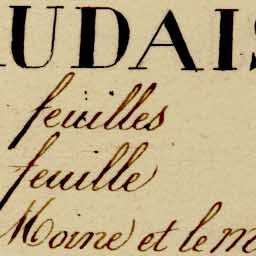 UDAIS
feuilles
feuille
Moine et le m